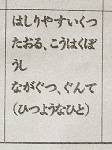 はしりやすいくつ
たおる、こうはくぼ
うし
ながぐつ、ぐんて
(ひつようなひと)